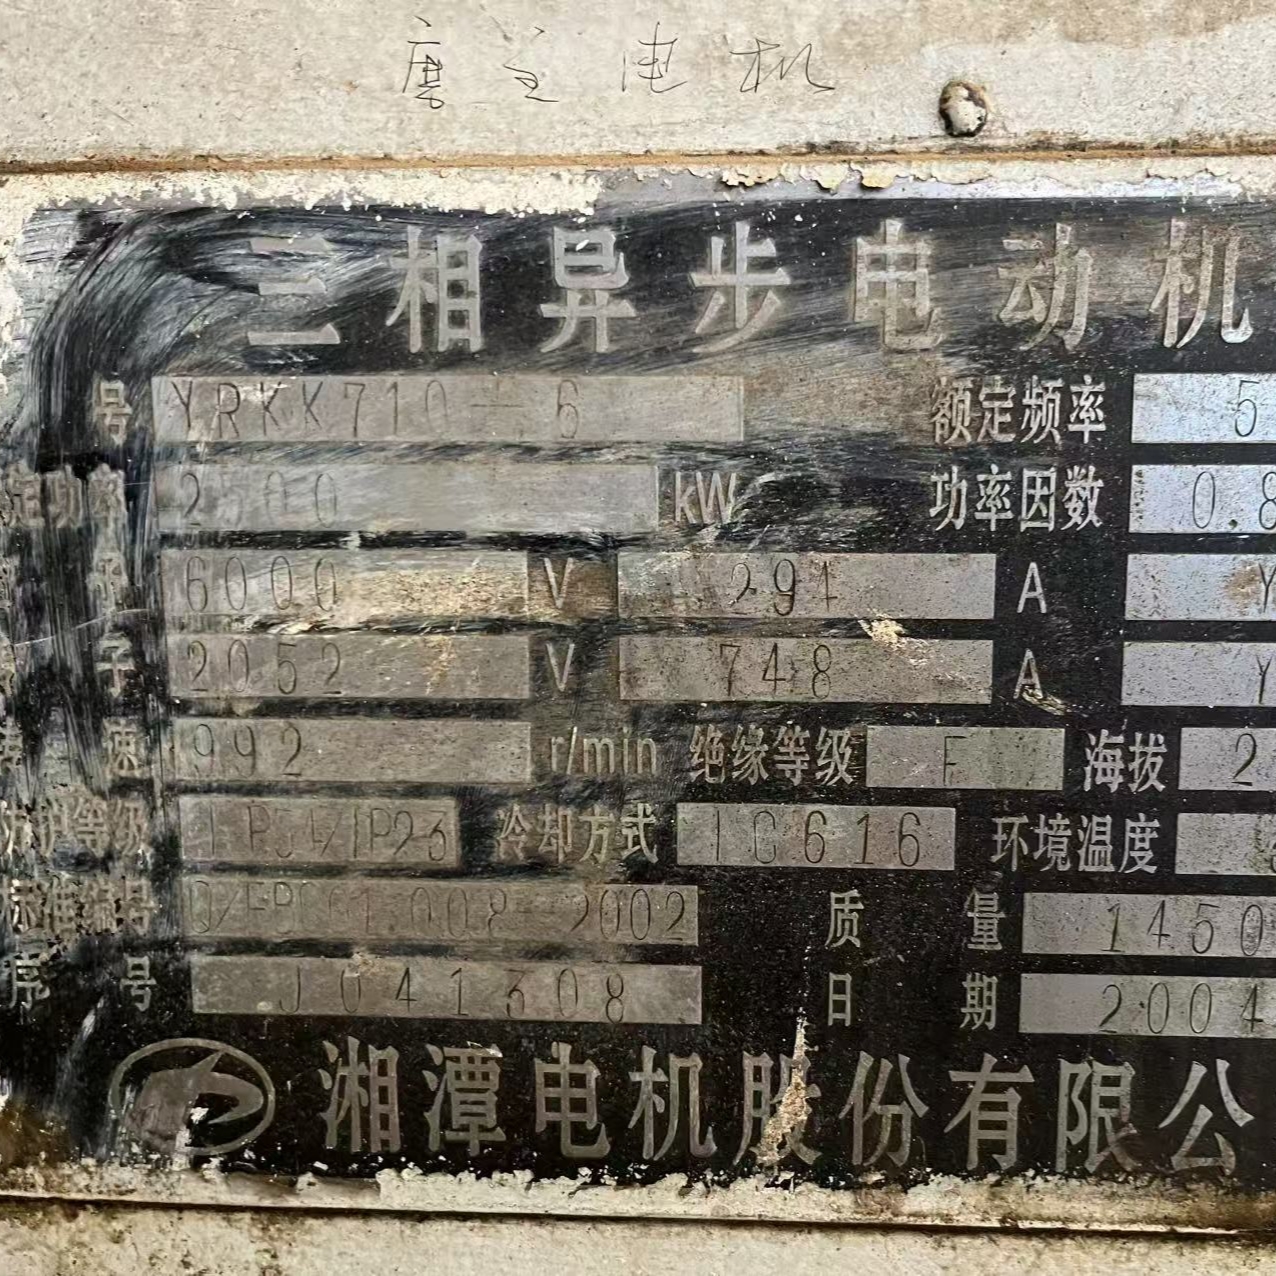 磨主电机
三相异步电动机
号 YRKK710-6 额定频率 5
定功率 2500 kW 功率因数 0.8
6000 V 291 A Y
子 2052 V 748 A Y
速 992 r/min 绝缘等级 F 海拔 2
防护等级 IP54/IP23 冷却方式 IC616 环境温度
标准编号 008-2002 质量 1450
序号 J041308 日期 2004
湘潭电机股份有限公